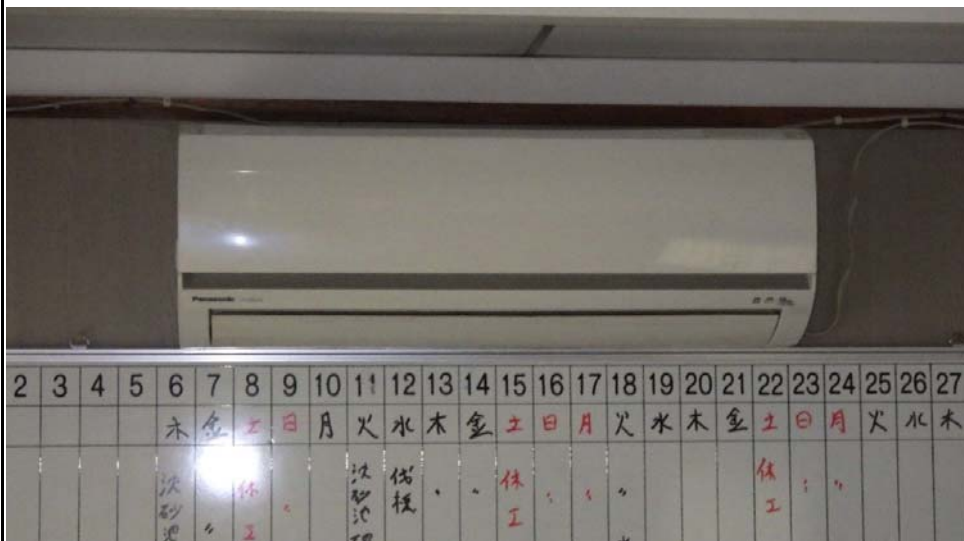 Panasonic
2 3 4 5 6 7 8 9 10 11 12 13 14 15 16 17 18 19 20 21 22 23 24 25 26 27
木 金 土 日 月 火 水 木 金 土 日 月 火 水 木 金 土 日 月 火 水 木
沈砂池 〃 休工 〃 沈砂池 伐採 〃 〃 休工 〃 〃 〃 休工 〃 〃